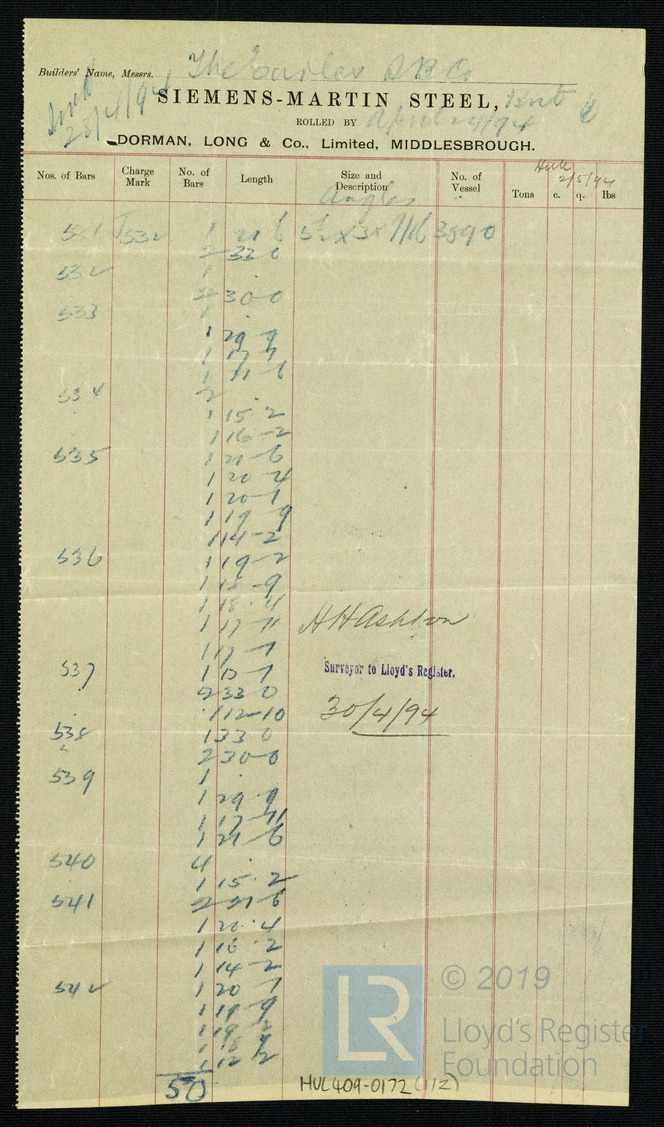 Builders' Name, Messrs. The Earles S B Co
28/4/94
SIEMENS-MARTIN STEEL,
ROLLED BY April 24/94
DORMAN, LONG & Co., Limited, MIDDLESBROUGH.
Hull 2/5/94
Nos. of Bars Charge Mark No. of Bars Length Size and Description No. of Vessel Tons c. q. lbs
Angles
531 J532 1 21 6 5½ x 3 x 7/16 3890
2 33 0
532 1
2 30 0
533 1
1 29 9
1 17 7
1 11 6
534 2
1 15 2
1 16 2
535 1 21 6
1 20 4
1 20 1
1 19 9
1 14 2
536 1 19 2
1 18 9
1 18 4
1 17 11
H H Ashton
1 17 7
537 1 17 1
Surveyor to Lloyd's Register.
2 33 0
1 12 10
30/4/94
538 1 33 0
2 30 0
539 1
1 29 9
1 17 11
1 21 6
540 4
1 15 2
541 2 21 6
1 20 4
1 16 2
1 14 2
542 1 20 1
1 19 9
1 19 2
1 18
1 12 2
50
HUL409-0172 (112)
LR
© 2019
Lloyd's Register
Foundation